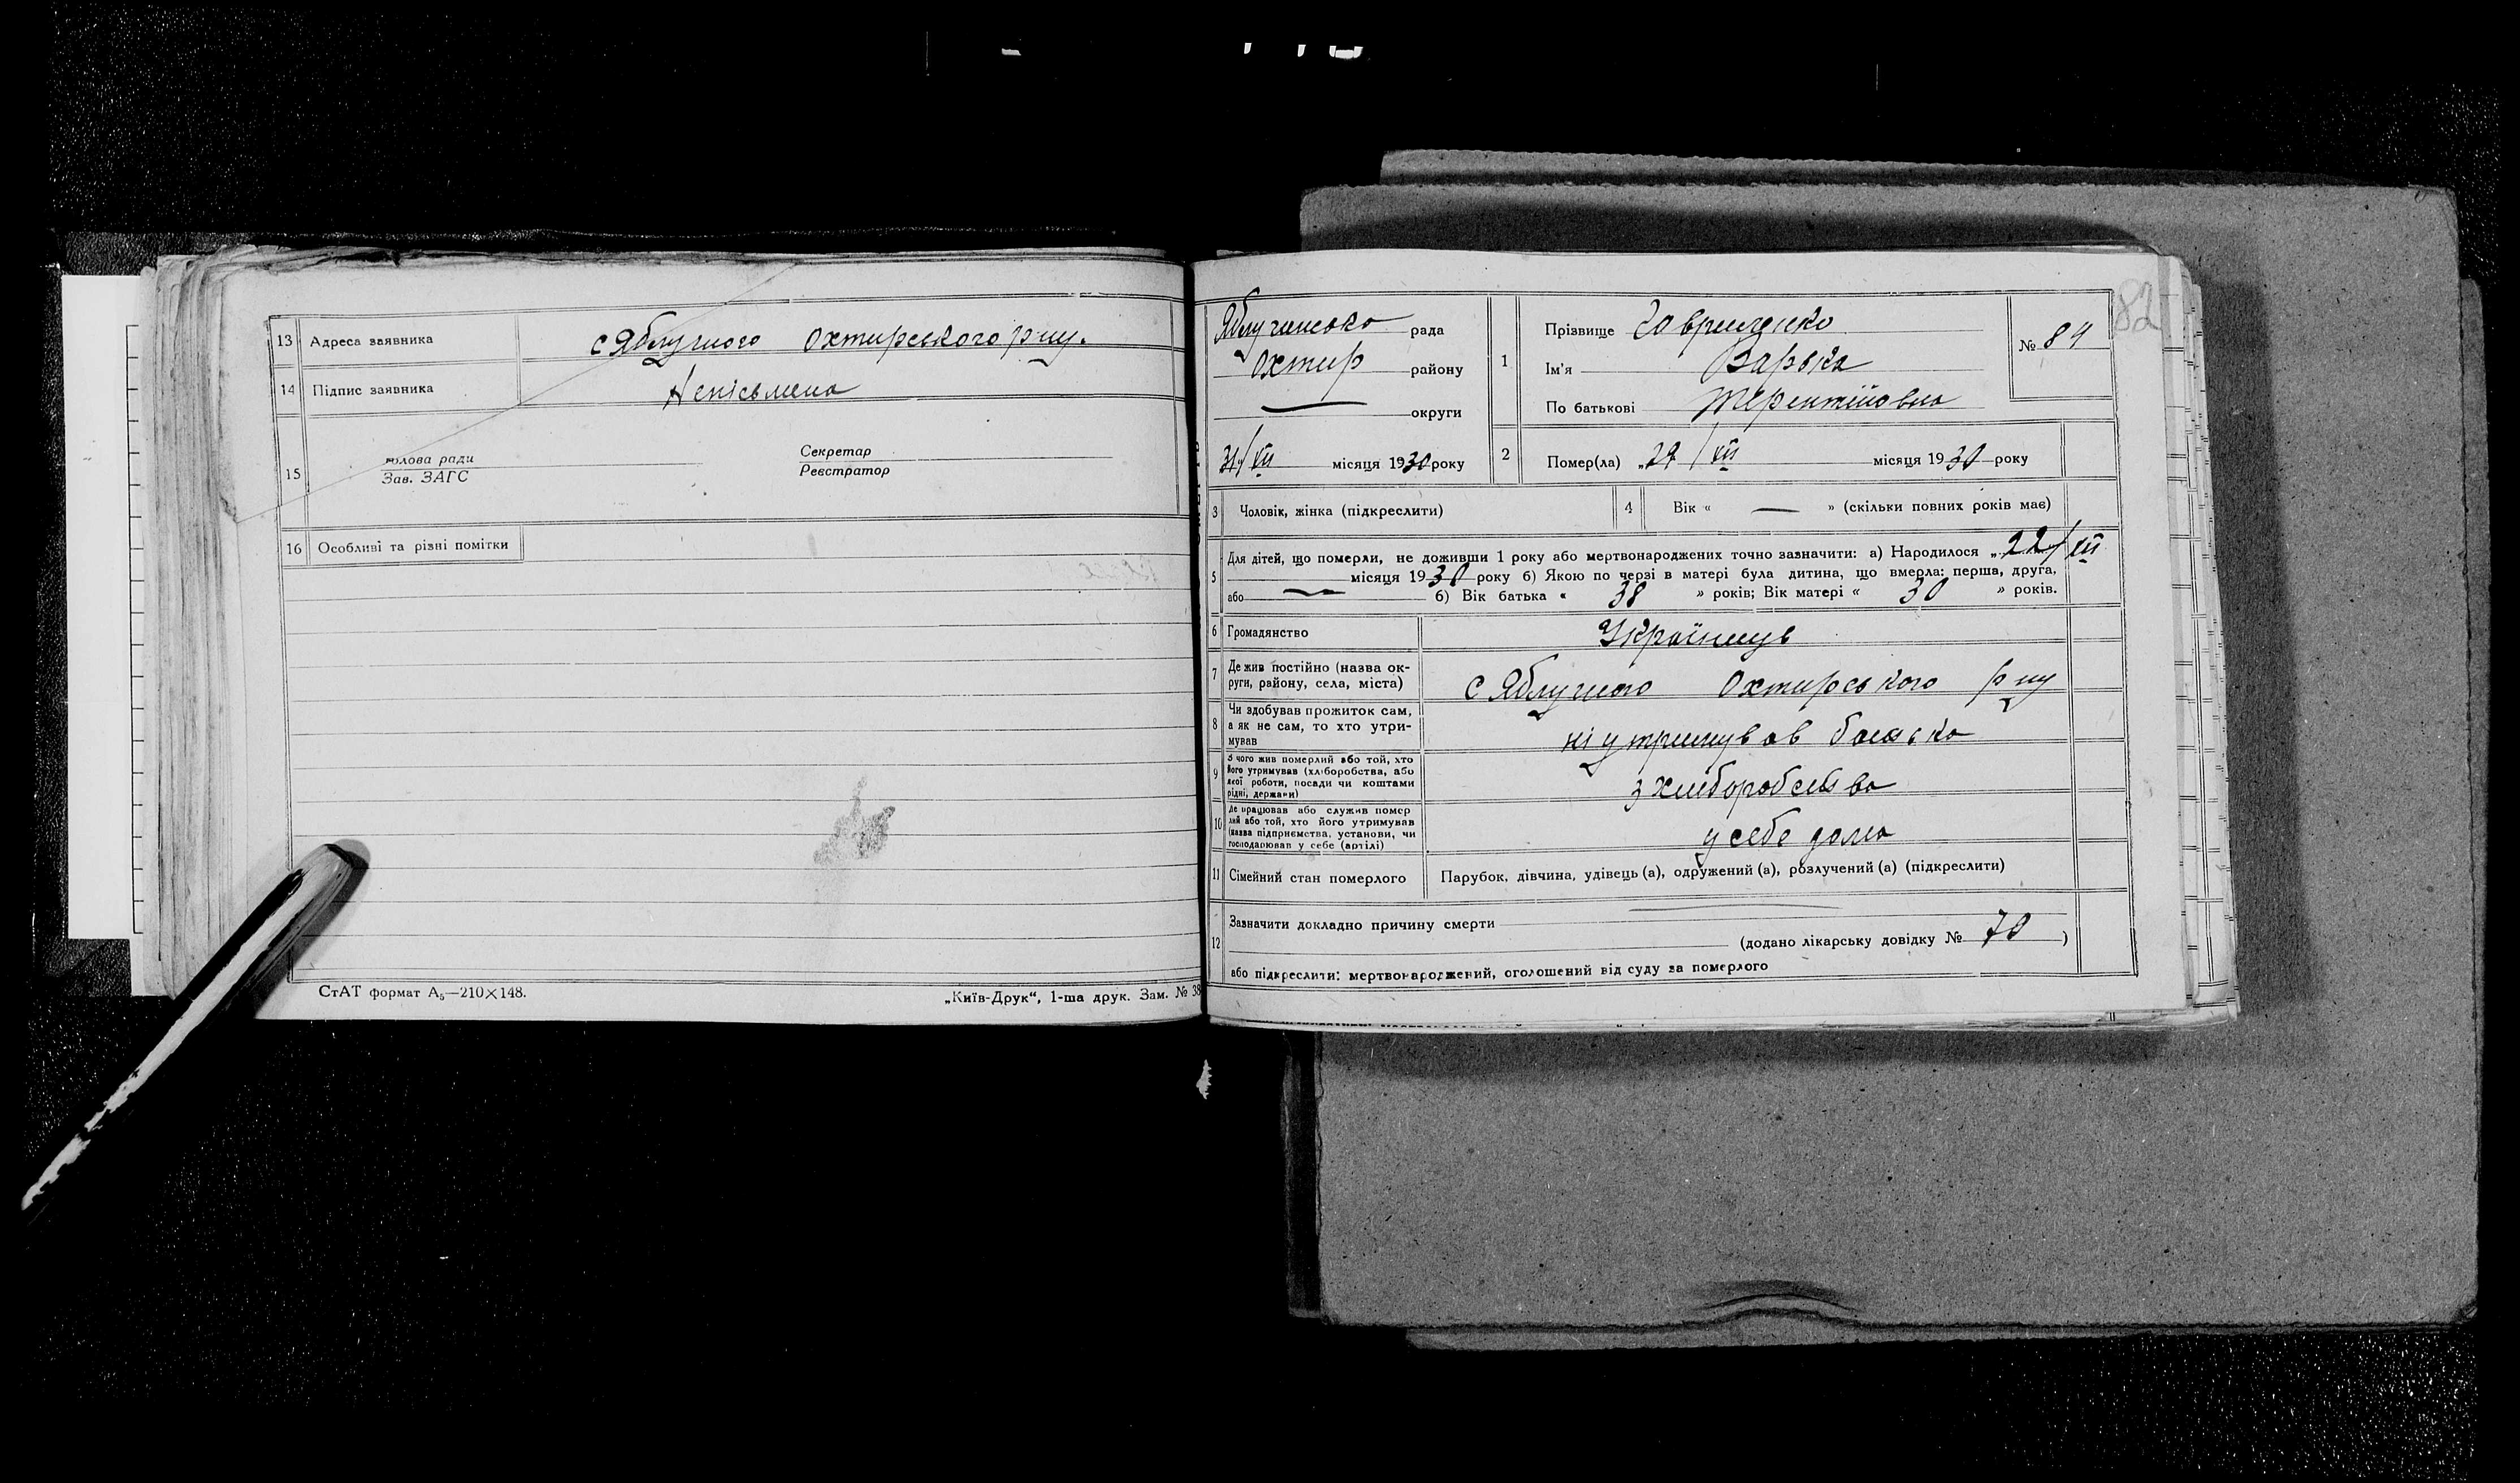 13 Адреса заявника с Яблучного Охтирського р ну.
14 Підпис заявника Непісьмена
15 голова ради Секретар
Зав. ЗАГС Реєстратор
16 Особливі та різні помітки
СтАТ формат А₅—210×148.
„Київ-Друк“, 1-ша друк. Зам. № 38
82
Яблучинсько рада
Охтир району
округи
31/XII місяця 1930 року
1 Прізвище Гавриленко
Ім'я Варька
По батькові Терентіївна
№ 84
2 Помер(ла) „29/XII місяця 1930 року
3 Чоловік, жінка (підкреслити)
4 Вік « — » (скільки повних років має)
5 Для дітей, що померли, не доживши 1 року або мертвонароджених точно зазначити: а) Народилося „22/XII
місяця 1930 року б) Якою по черзі в матері була дитина, що вмерла: перша, друга,
або — б) Вік батька « 38 » років; Вік матері « 30 » років.
6 Громадянство Українців
7 Де жив постійно (назва ок-
руги, району, села, міста) с Яблучного Охтирського р ну
8 Чи здобував прожиток сам,
а як не сам, то хто утри-
мував ні утримував батько
9 З чого жив померлий або той, хто
його утримував (хліборобства, або
якої роботи, посади чи коштами
рідні, держави) з хліборобства
10 Де працював або служив помер
лий або той, хто його утримував
(назва підприємства, установи, чи
господарював у себе (артілі) у себе дома
11 Сімейний стан померлого Парубок, дівчина, удівець (а), одружений (а), розлучений (а) (підкреслити)
12 Зазначити докладно причину смерти
(додано лікарську довідку № 70 )
або підкреслити: мертвонароджений, оголошений від суду за померлого